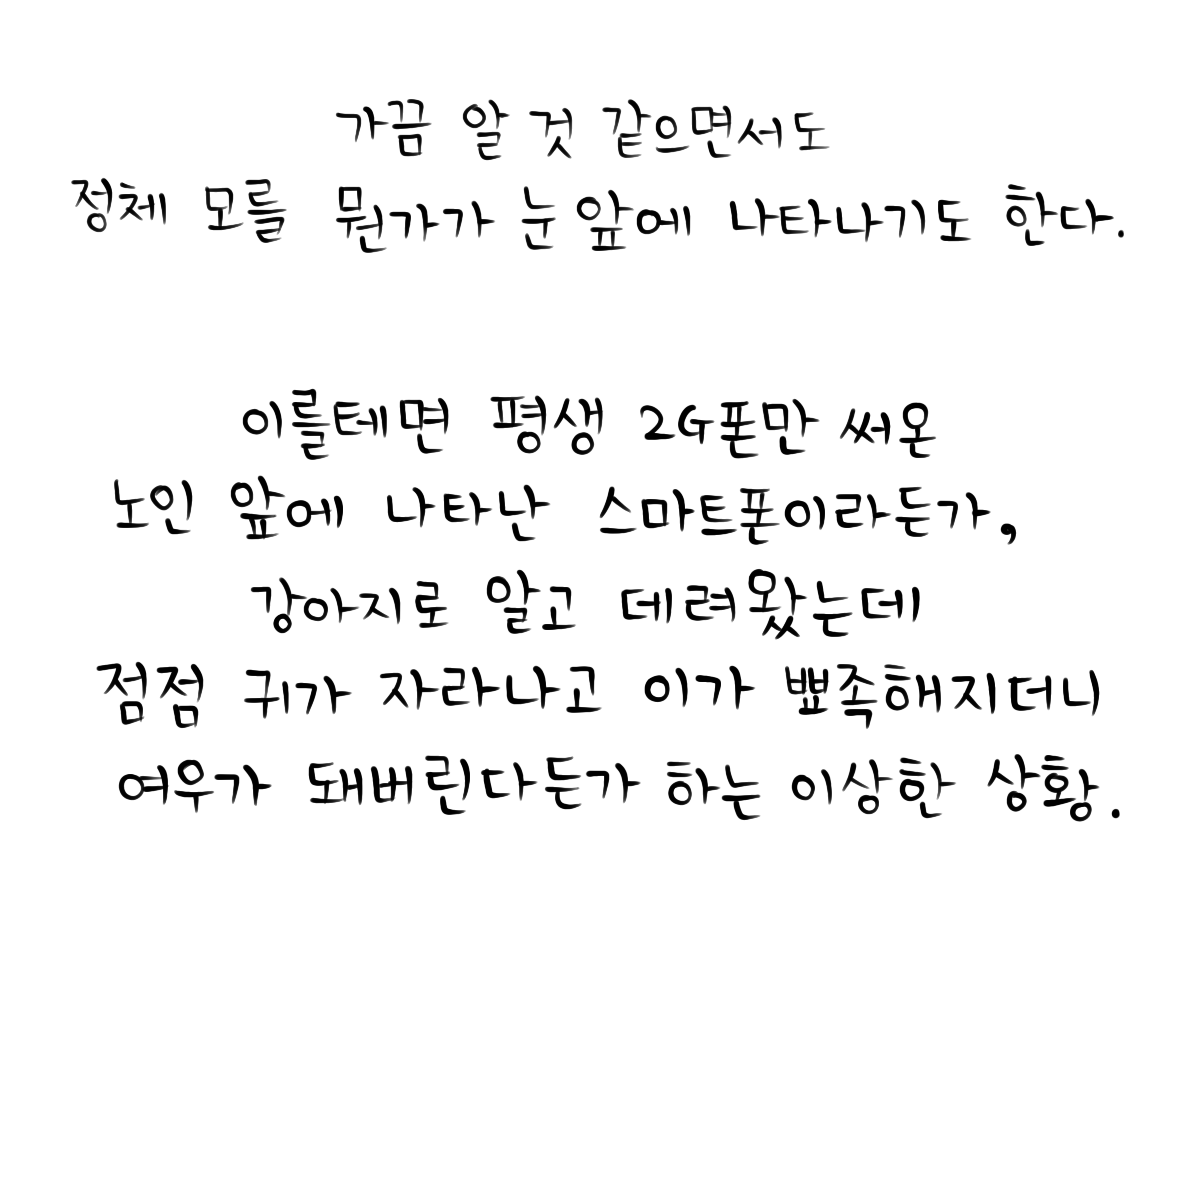 가끔 알 것 같으면서도
정체 모를 뭔가가 눈앞에 나타나기도 한다.
이를테면 평생 2G폰만 써온
노인 앞에 나타난 스마트폰이라든가,
강아지로 알고 데려왔는데
점점 귀가 자라나고 이가 뾰족해지더니
여우가 돼버린다든가 하는 이상한 상황.